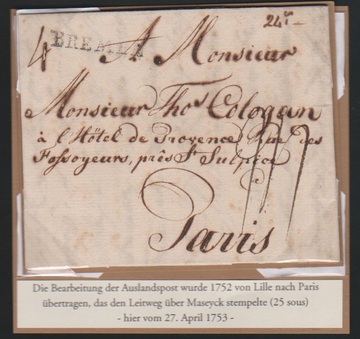 24 s
4 BREMEN A Monsieur
Monsieur Thos Cologan
à l'Hôtel de Provence rue des
Fossoyeurs, près St Sulpice
Paris
Die Bearbeitung der Auslandspost wurde 1752 von Lille nach Paris
übertragen, das den Leitweg über Maseyck stempelte (25 sous)
- hier vom 27. April 1753 -